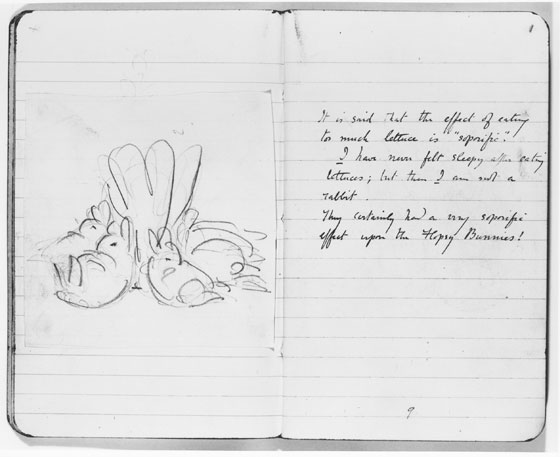 It is said that the effect of eating
too much lettuce is "soporific".
I have never felt sleepy after eating
lettuces; but then I am not a
rabbit.
They certainly had a very soporific
effect upon the Flopsy Bunnies!
9